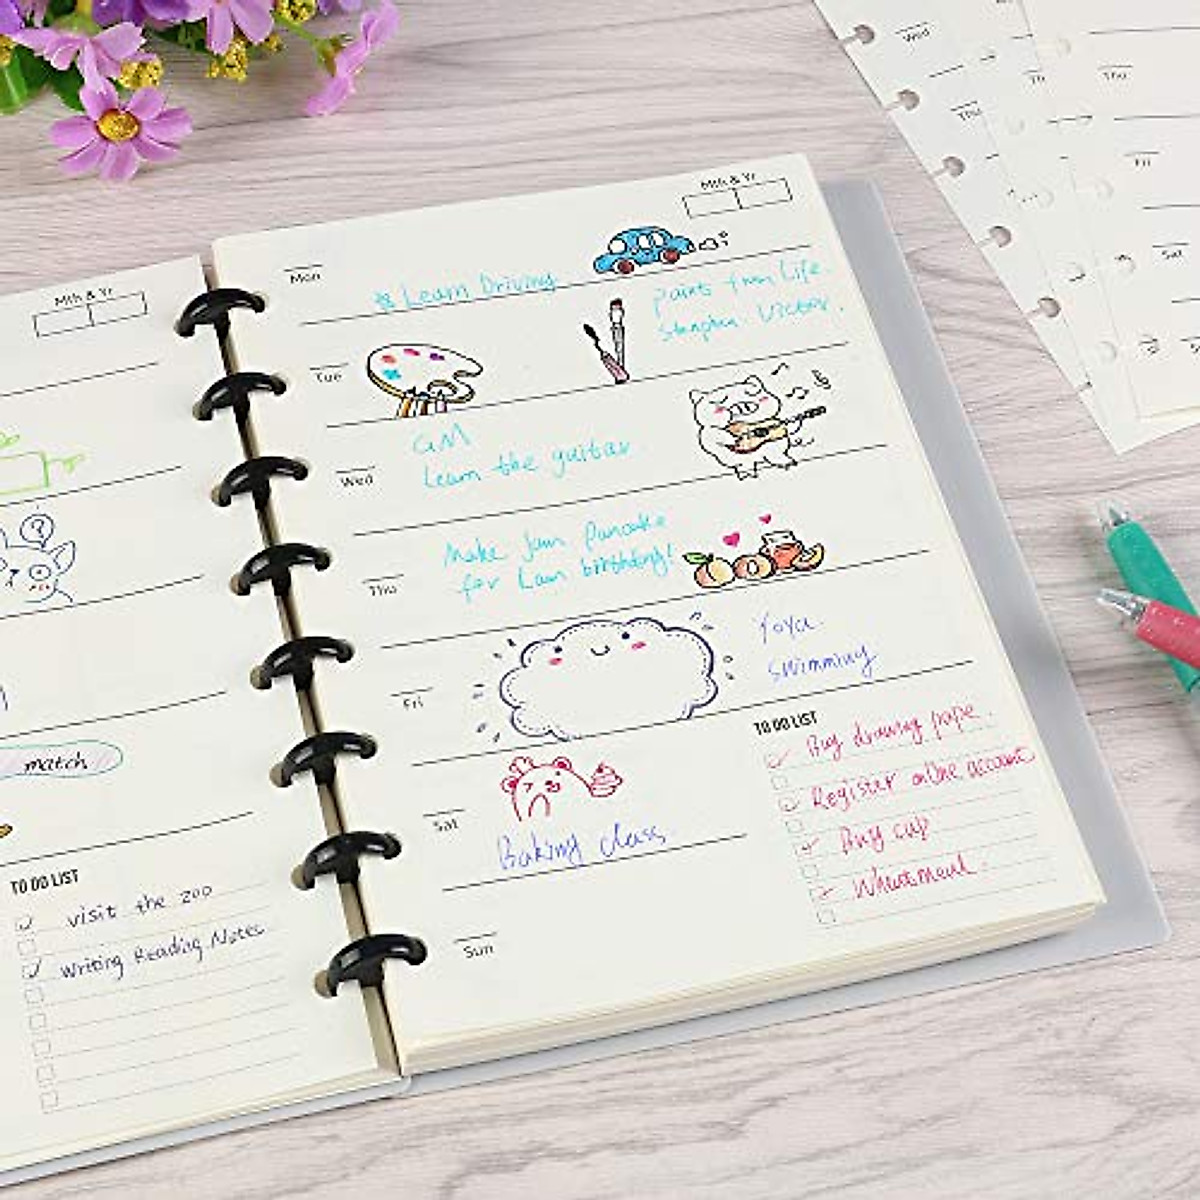 Mth & Yr
match
TO DO LIST
visit the zoo
Writing Reading Notes
Mth & Yr
Mon
Learn Driving
Tue
paints from Life.
Victor.
Wed
GM
Learn the guitar
Thu
Make Jam Pancake
for birthday!
Fri
Yoya.
Swimming
Sat
Baking class.
TO DO LIST
Buy drawing pape.
Register online account
Buy cup
Sun
Wed
Thu
Thu
Fri
Sat